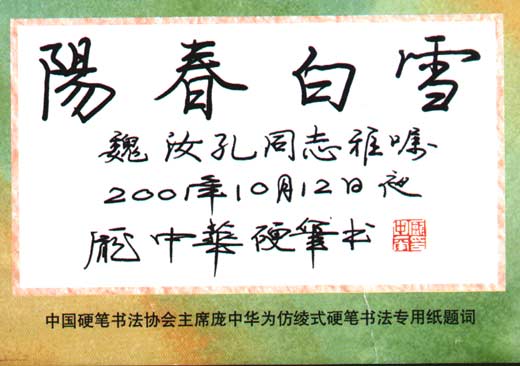 陽春白雪
魏汝孔同志雅嘱
2001年10月12日夜
龐中華硬筆书
中国硬笔书法协会主席庞中华为仿绫式硬笔书法专用纸题词